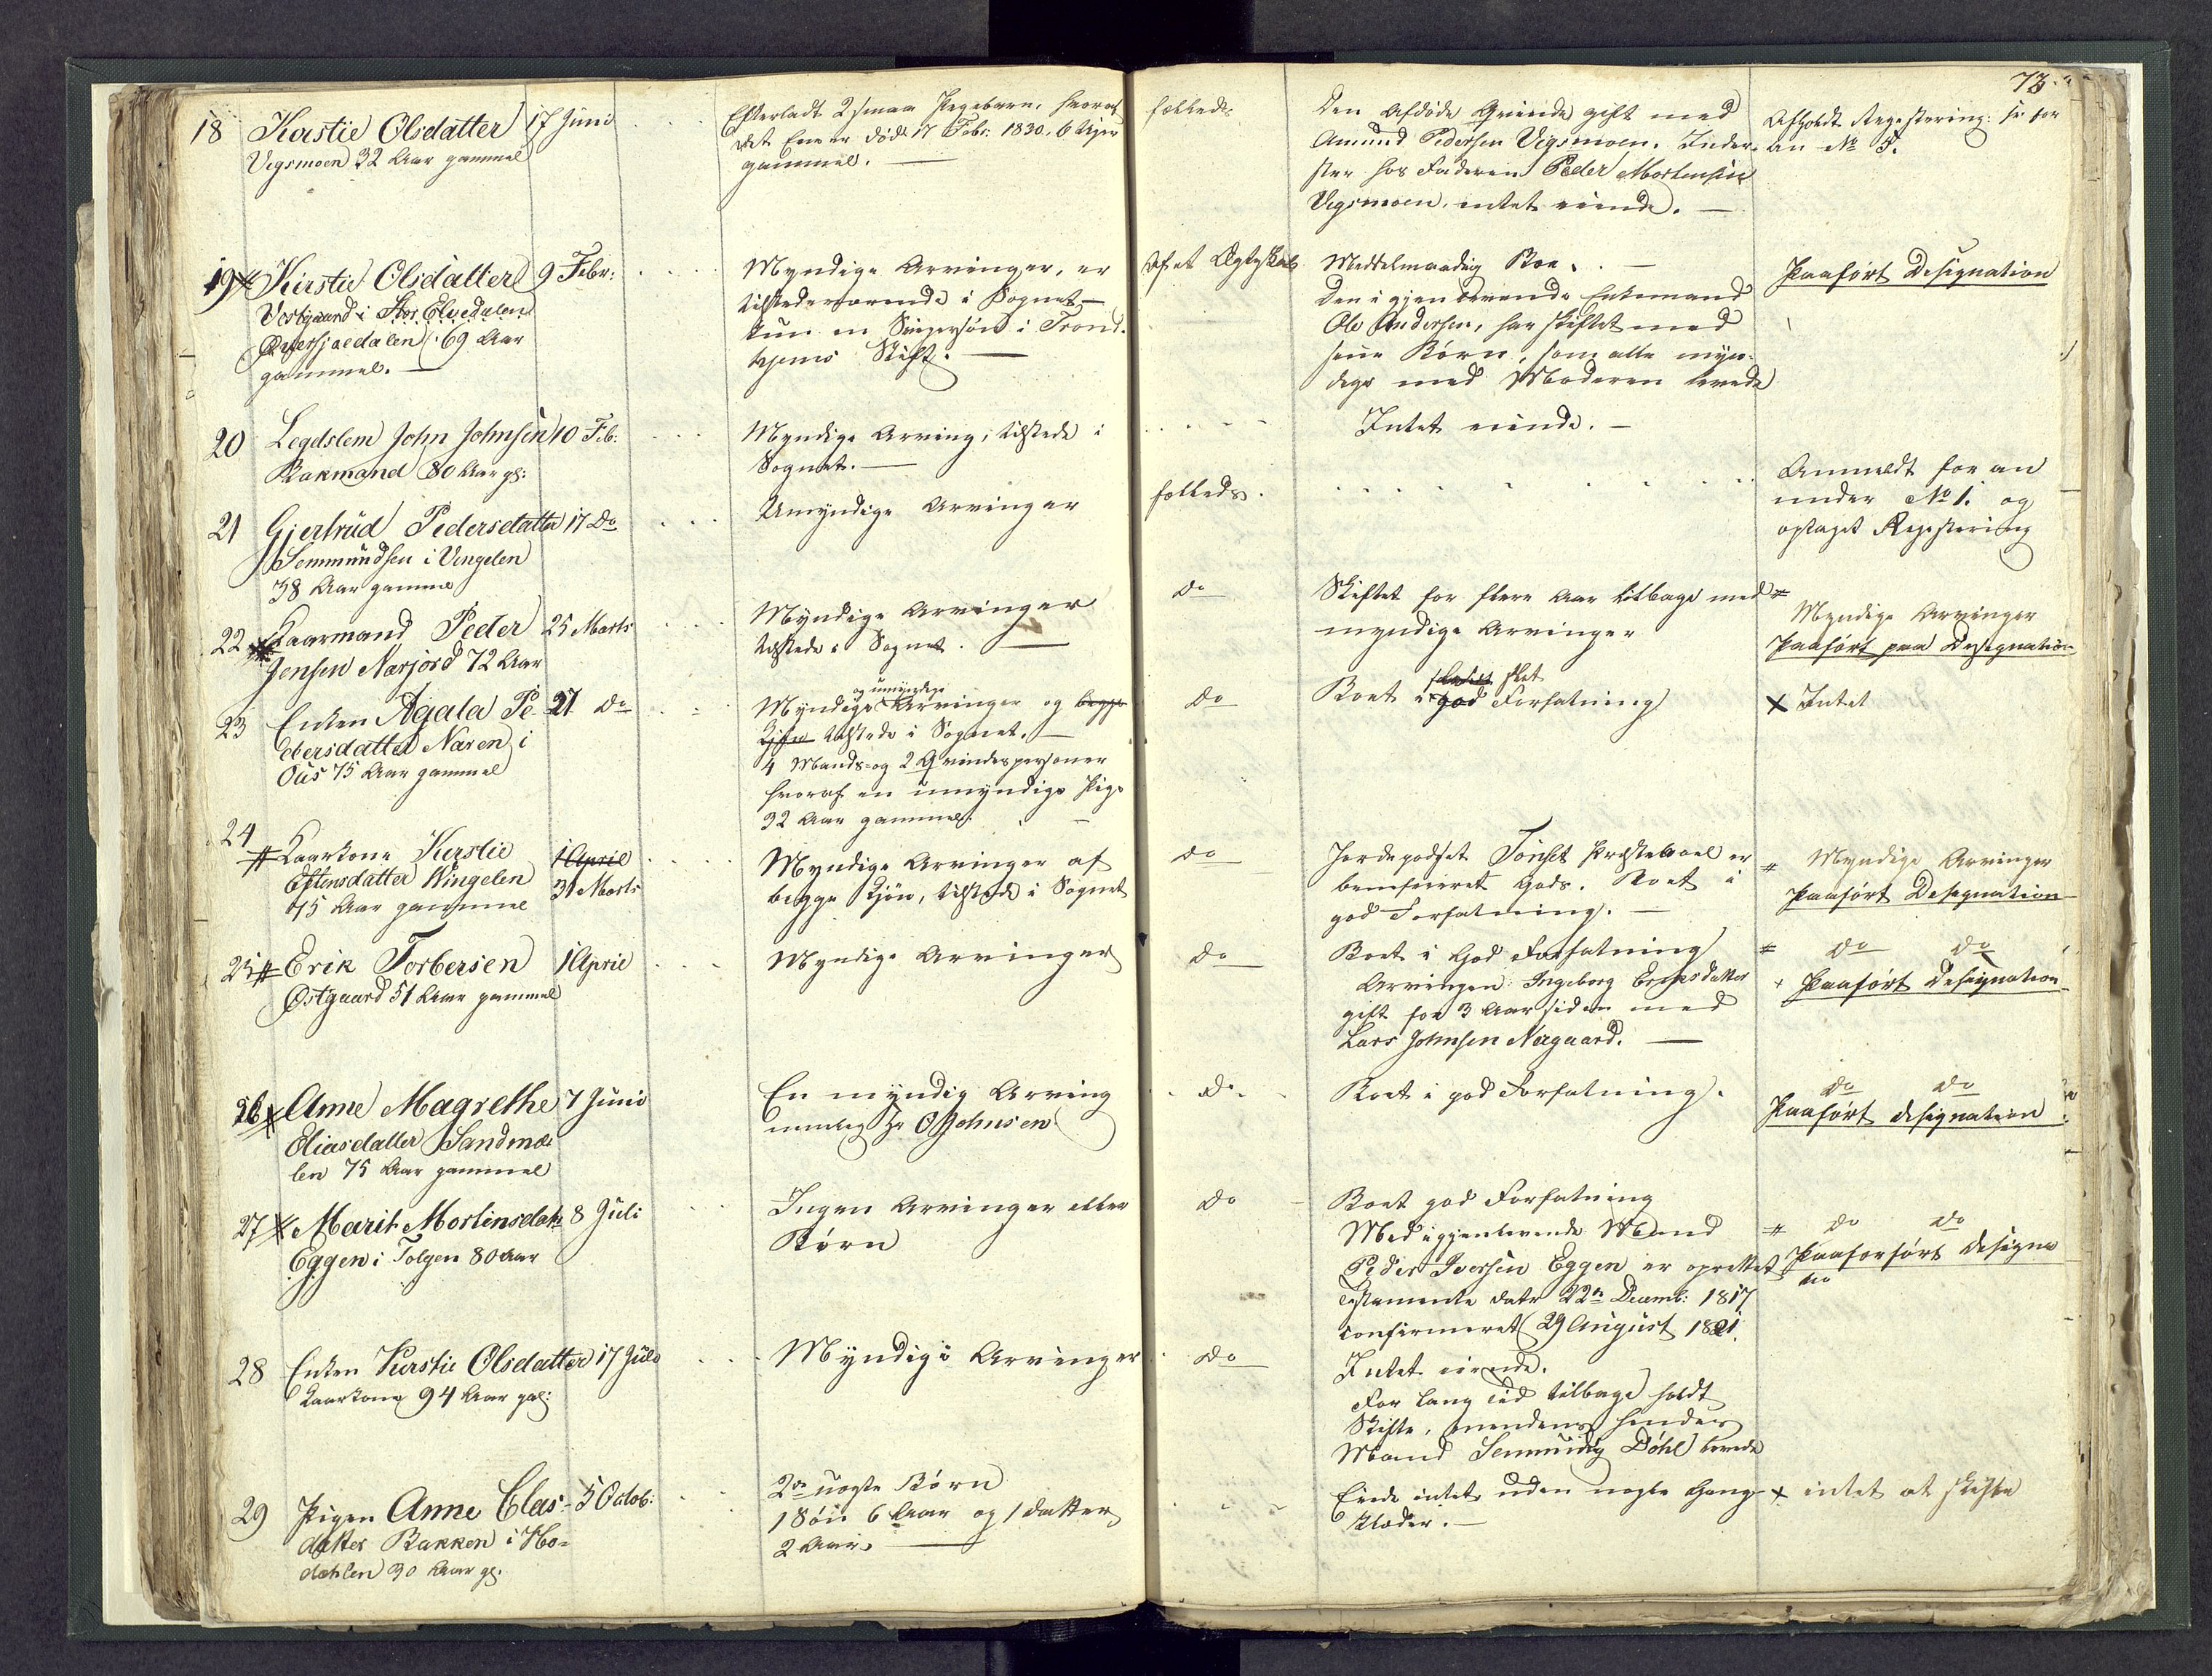 73.
18 Kerstie Olsdatter 17 Juni
Vegsmoen 32 Aar gammel
Efterladt 2 smaa Pigebarn, hvoraf
det Ene er død 17 Febr: 1830. 6 Uger
gammel.
fælleds
Den Afdøde Qvinde gift med
Amund Pedersen Vegsmoen. Inder-
ster hos Faderen Peder Mortensen
Vegsmoen, intet eiende.
Afholdt Registering: se for
an No 5.
19 Kirstie Olsdatter 9 Febr:
Vestgaard i Stor Elvedalen
Østerrjædalen 69 Aar
gammel.
Myndige Arvinger, er
tilstedeværende i Sognet
kun en Søn i Trond-
hjems Stift.
Af et Ægteskab
Middelmaadig Boe.
Den igjenlevende Enkemand
Ole Andersen, har skiftet med
sine Børn, som alle myn-
dige med Moderen levede
Paaført Designation
20 Legdslem John Johnsen 10 Feb:
Bakmand 80 Aar gl:
Myndige Arving, tilstede i
Sognet.
Intet eiende.
21 Gjertrud Pedersdatter 17 Do
Semmundsen i Vingelen
38 Aar gammel
Umyndige Arvinger
fælleds.
Anmeldt for an
under No 1. og
optaget Registering
22 Kaarmand Peder 25 Marts
Jensen Narjord 72 Aar
Myndige Arvinger
tilstede i Sognet.
Do
Skiftet for flere Aar tilbage med
myndige Arvinger
Myndige Arvinger
Paaført paa Designation
23 Enken Agata Pe- 27 Do
dersdatter Naren i
Ous 75 Aar gammel
og umyndige
Myndige Arvinger og begge
Kjøn tilstede i Sognet.
4 Mands- og 2 Qvindespersoner
hvoraf en umyndige Pige
32 Aar gammel.
Do
slet
Boet i god Forfatning
x Intet
24 Kaarkone Kirstie 1 April
Estensdatter Vingelen 31 Marts
75 Aar gammel
Myndige Arvinger af
begge Kjøn, tilstede i Sognet
Do
Jordegodset Tønset Præsteboel er
beneficeret Gods. Boet i
god Forfatning.
Myndige Arvinger
Paaført Designation
25 Erik Torbersen 1 April
Østgaard 51 Aar gammel
Myndige Arvinger
Do
Boet i God Forfatning
Arvingen: Ingeborg Erichsdatter
gift for 3 Aar siden med
Lars Johnsen Nergaard.
Do Do
Paaført Designation
26 Anne Magrethe 7 Juni
Eliasdatter Sandmæ-
len 75 Aar gammel
En myndig Arving
nemlig Hr O Johnsen
Do
Boet i god Forfatning.
Do Do
Paaført designation
27 Marit Mortinsdatr 8 Juli
Eggen i Tolgen 80 Aar
Ingen Arvinger eller
Børn
Do
Boet god Forfatning
Med igjenlevende Mand
Peder Iversen Eggen er oprettet
Testamente datr 22de Decemb: 1817
confirmeret 29 August 1821.
Do Do
Paaforført designa
tio
28 Enken Kirstie Olsdatter 17 Juli
Kaarkone 94 Aar gal:
Myndige Arvinger
Do
Intet eiende.
For lang Tid tilbage holdt
Skifte, mendens hendes
Mand Semming Döhl levede
29 Pigen Anne Clas- 5 Octob:
datter Bakken i Ho-
dahlen 30 Aar gl.
2de uægte Børn
1 Søn 6 Aar og 1 datter
2 Aar
Eiede intet uden nogle Gang-
klæder.
x intet at skifte